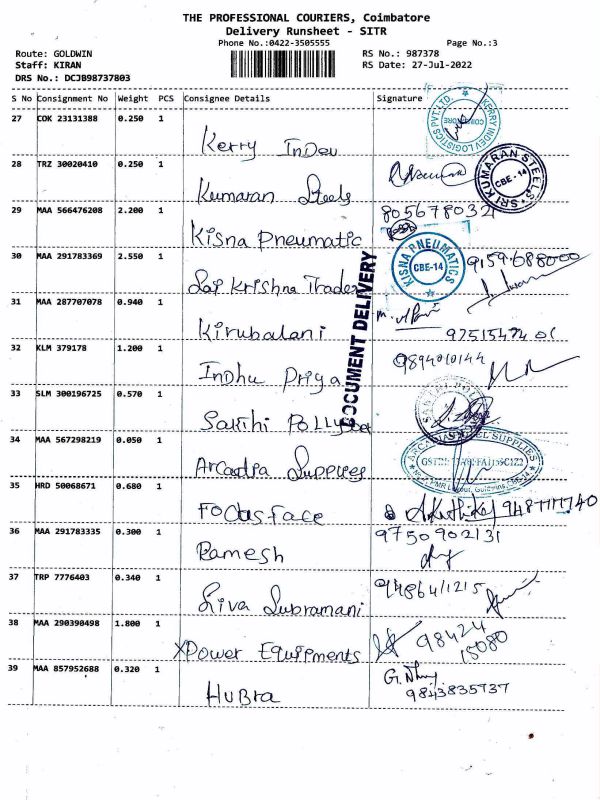 THE PROFESSIONAL COURIERS, Coimbatore
Delivery Runsheet - SITR
Phone No.:0422-3505555 Page No.:3
Route: GOLDWIN RS No.: 987378
Staff: KIRAN RS Date: 27-Jul-2022
DRS No.: DCJB98737803
S No Consignment No Weight PCS Consignee Details Signature
27 COK 23131388 0.250 1 Kerry Indev
KERRY INDEV LOGISTICS PVT.LTD. COIMBATORE
28 TRZ 30020410 0.250 1 Kumaran Steels
SRI KUMARAN STEELS CBE-14
29 MAA 566476208 2.200 1 Kisna Pneumatic 8056780321
KISNA PNEUMATICS CBE-14
30 MAA 291783369 2.550 1 Sai Krishna Trades 9159688000
DOCUMENT DELIVERY
31 MAA 287707078 0.940 1 Kirubalani
32 KLM 379178 1.200 1 Indhu Priya 9894010144
33 SLM 300196725 0.570 1 Sakthi
34 MAA 567298219 0.050 1 Arcadia Supplies
STEEL SUPPLIES
35 HRD 50068671 0.680 1 Focus Face
36 MAA 291783335 0.300 1 Ramesh 9750902131
37 TRP 7776403 0.340 1 Siva Subramani
38 MAA 290390498 1.800 1 XPower Equipments 98424
15080
39 MAA 857952688 0.320 1 Hubra
9843835737